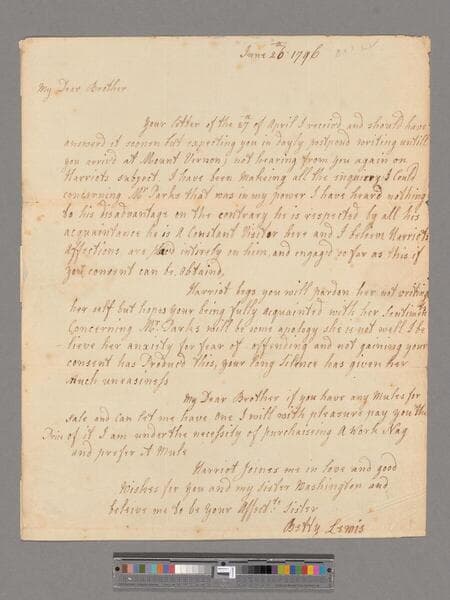 June 26th 1796
My Dear Brother
Your letter of the 27th of April I receivd and should have
answerd it sooner but expecting you in dayly postpond writing untill
you arrivd at Mount Vernon, not hearing from you again on
Harriets subject. I have been makeing all the inquiery I Could
concerning Mr Parks that was in my power I have heard nothing
to his disadvantage on the contrary he is respected by all his
acquaintance he is A Constant Visitor here and I beleve Harriets
Affections are intirely on him, and engag'd so far as this if
your consent can be obtaind,
Harriot begs you will pardon her not writing
her self but hopes your being fully acquainted with her Sentiments
Concerning Mr. Parks will be some apology she is not well I be
lieve her anxiety for fear of offending and not gaining your
consent has Produced this, your long silence has given her
much uneasiness
My Dear Brother if you have any Mules for
sale and can let me have one I will with pleasure pay you the
Price of it I am under the necessity of purchaising A Work Nag
and prefer A Mule
Harriot Joines me in love and good
Wishes for you and my Sister Washington and
beleive me to be your Affectt. Sister
Betty Lewis